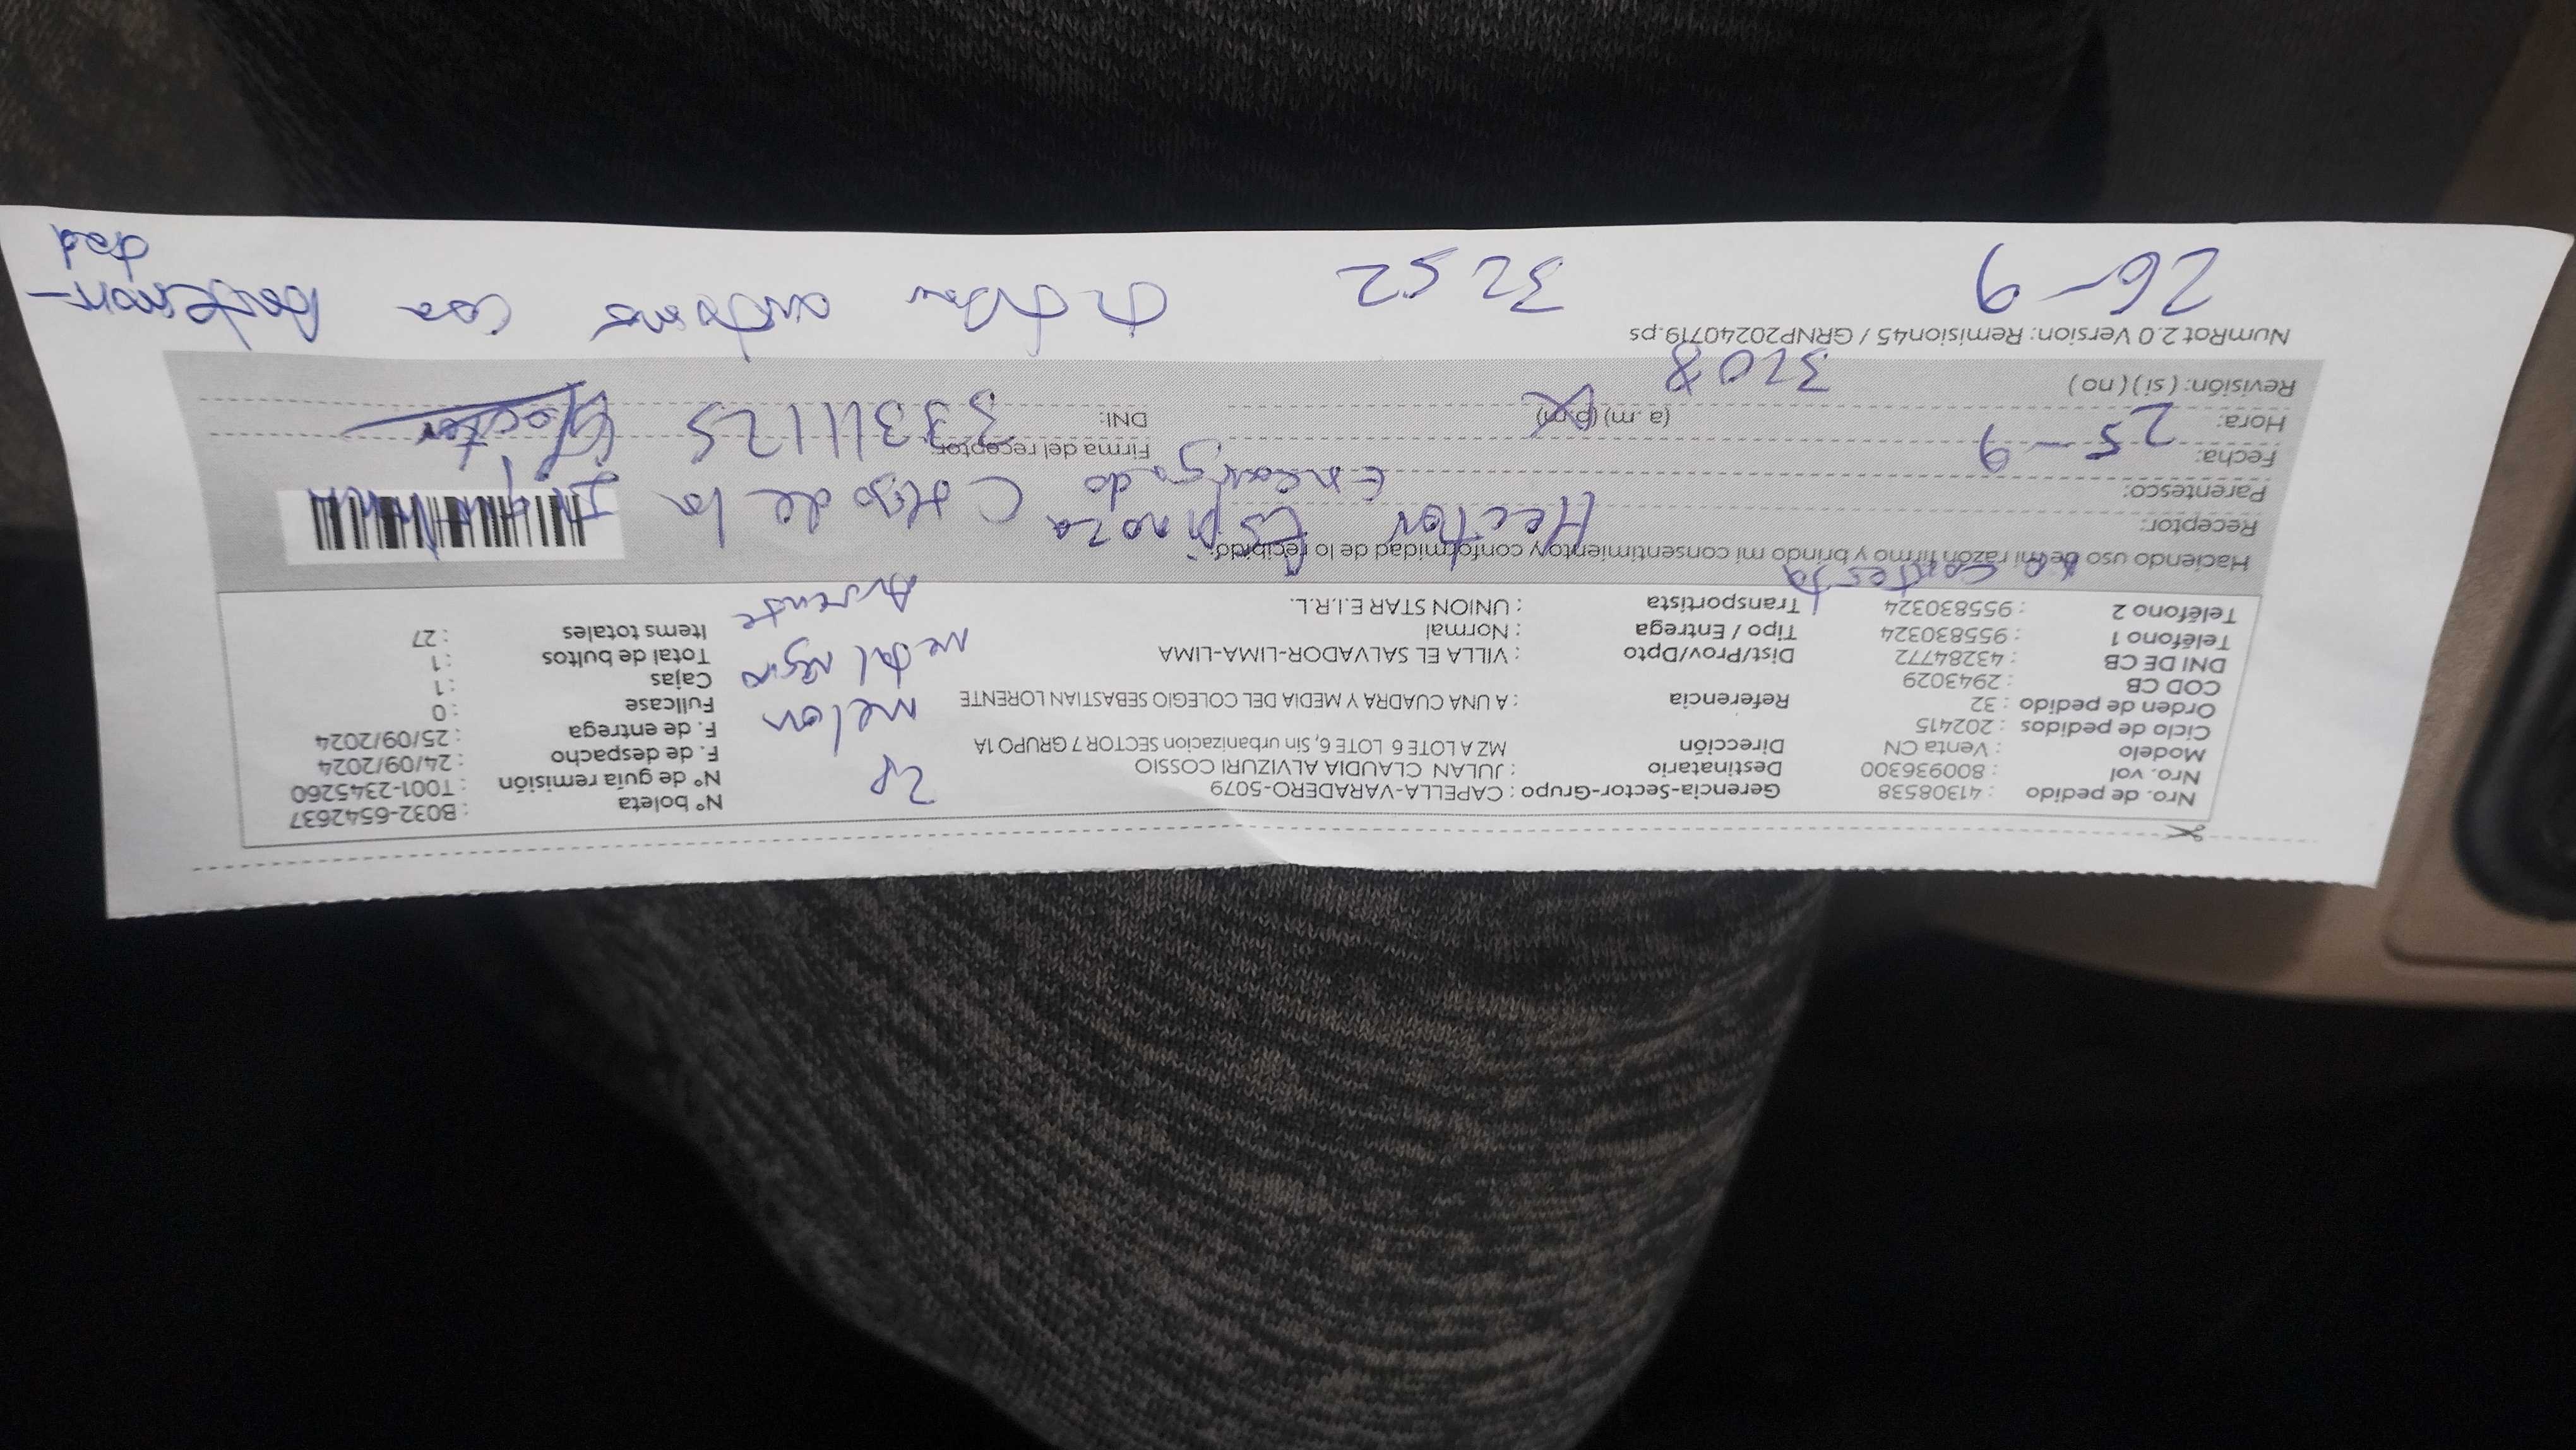 Nro. de pedido : 41308538 Gerencia-Sector-Grupo : CAPELLA-VARADERO-5079 N° boleta : B032-6542637
Nro. vol : 800936300 Destinatario : JULAN CLAUDIA ALVIZURI COSSIO 2P N° de guía remisión : T001-2345260
Modelo : Venta CN Dirección MZ A LOTE 6 LOTE 6, Sin urbanizacion SECTOR 7 GRUPO 1A F. de despacho : 24/09/2024
Ciclo de pedidos : 202415 melon F. de entrega : 25/09/2024
Orden de pedido : 32 Referencia : A UNA CUADRA Y MEDIA DEL COLEGIO SEBASTIAN LORENTE Fullcase : 0
COD CB : 2943029 metal negro Cajas : 1
DNI DE CB : 43284772 Dist/Prov/Dpto : VILLA EL SALVADOR-LIMA-LIMA Total de bultos : 1
Teléfono 1 : 955830324 Tipo / Entrega : Normal Items totales : 27
Teléfono 2 : 955830324 Transportista : UNION STAR E.I.R.L. Ausente
no contesta
Haciendo uso de mi razón firmo y brindo mi consentimiento y conformidad de lo recibido:
Receptor: Hector Espinoza C Hijo de la
Parentesco: Encargado
Fecha: 25-9 Firma del receptor: Hector
Hora: (a .m) (p.m) DNI: 33311125
Revisión: ( si ) ( no ) 3208
NumRot 2.0 Version: Remision45 / GRNP20240719.ps
26-9 3252
dad